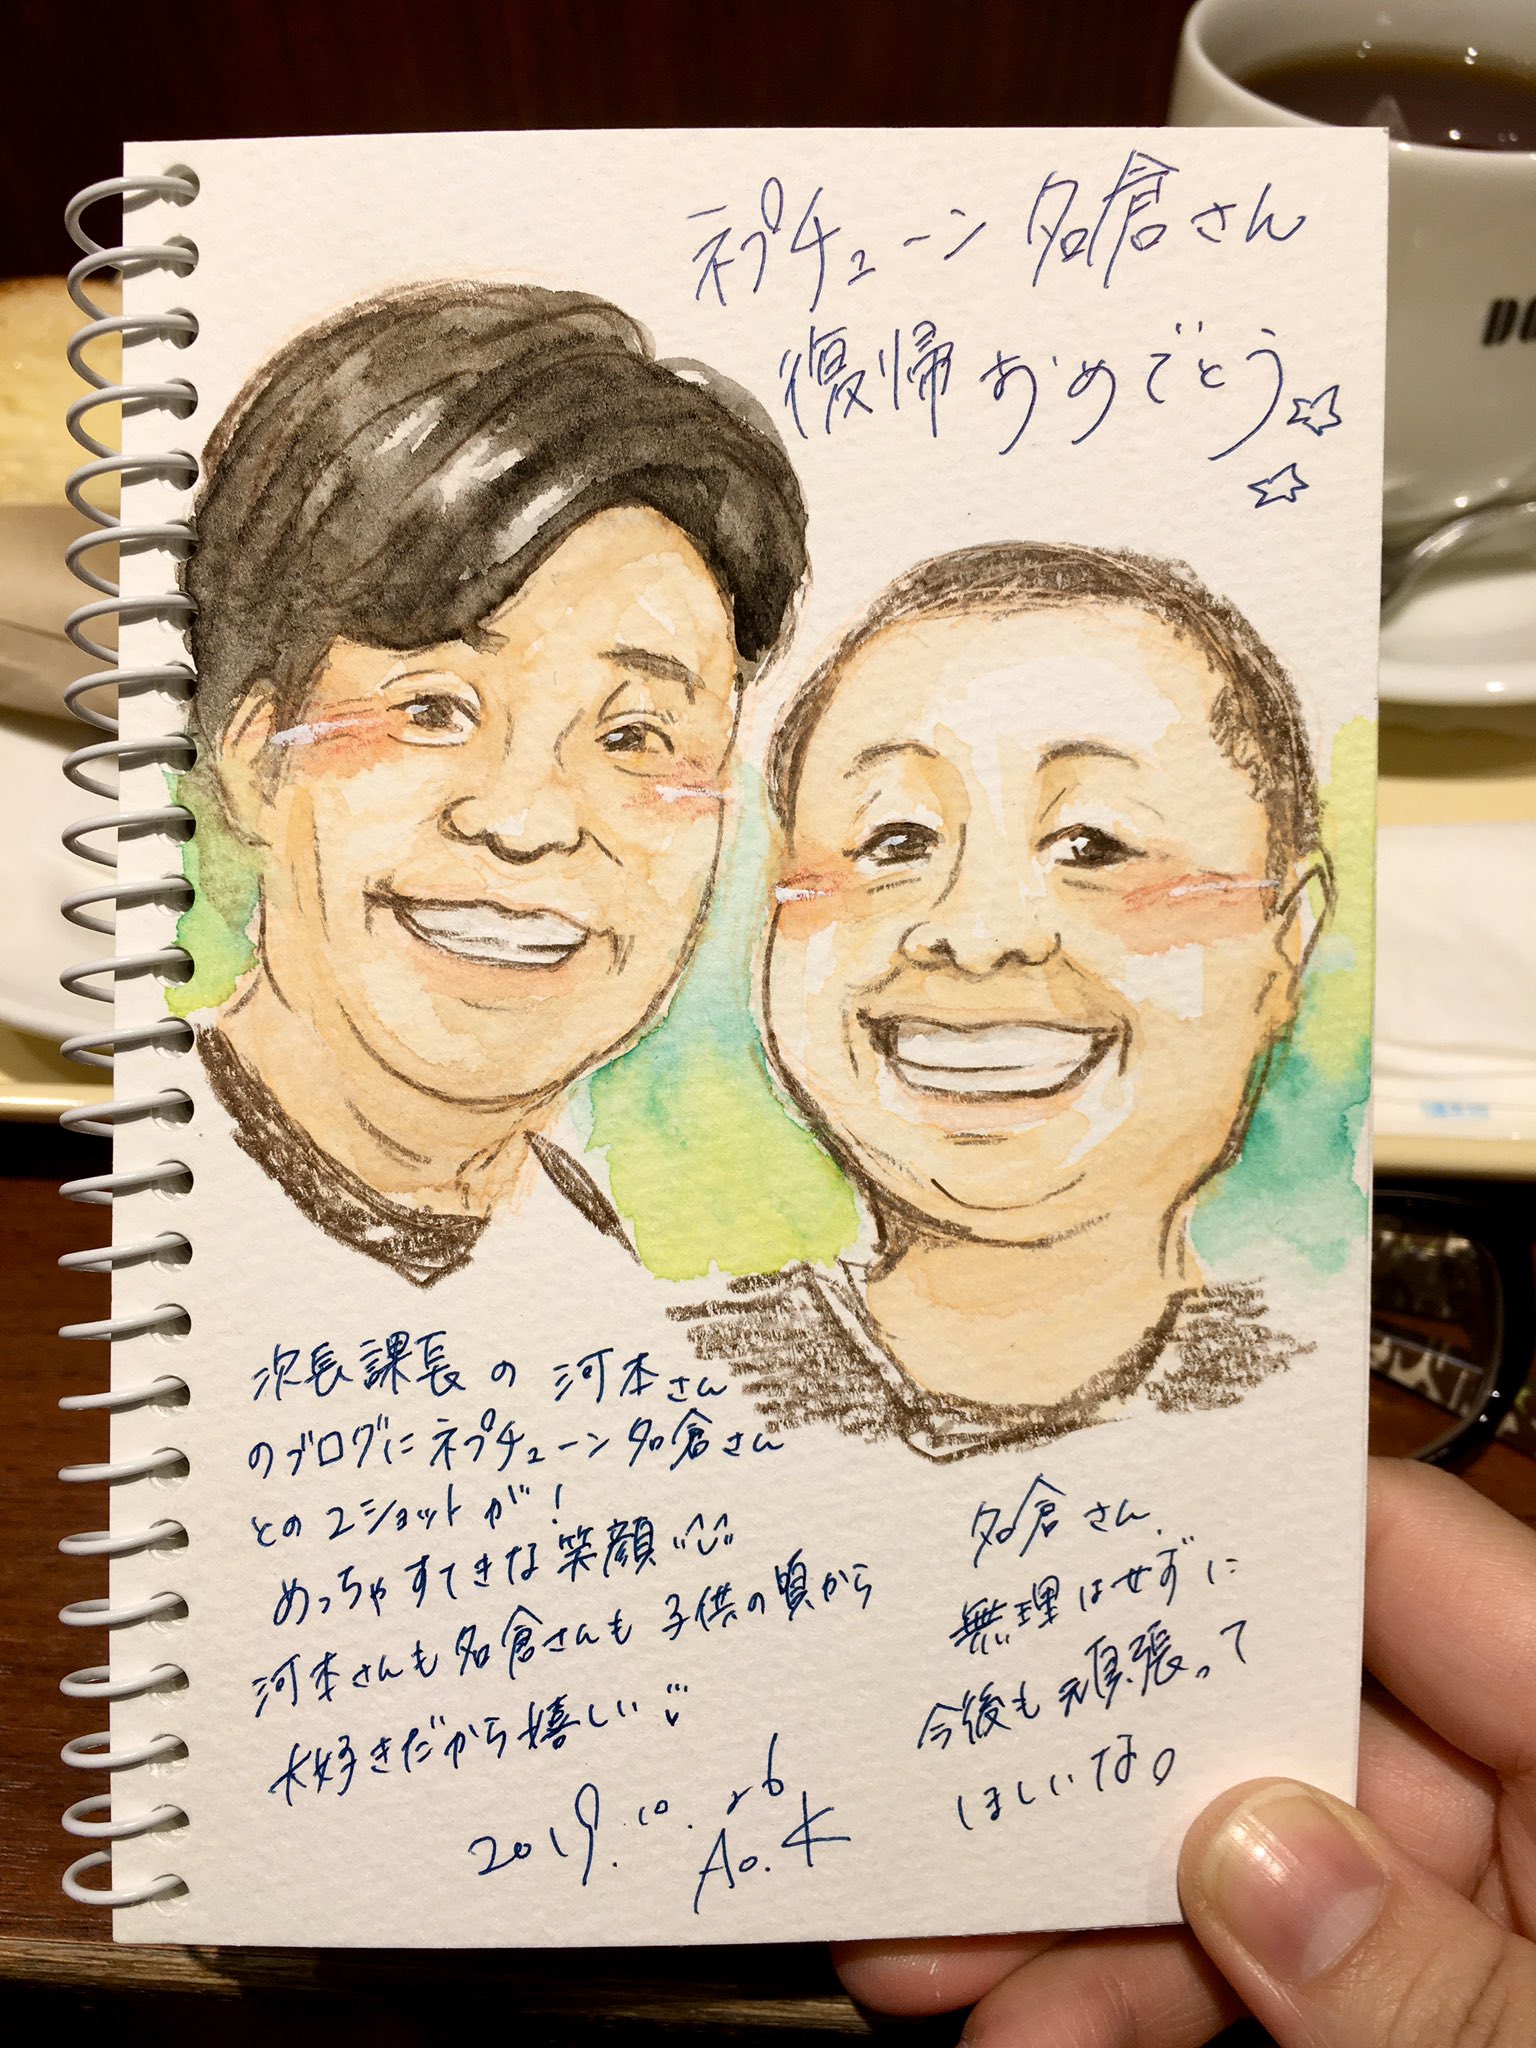 ネプチューン名倉さん
復帰おめでとう
次長課長の河本さん
のブログにネプチューン名倉さん
との2ショットが!
めっちゃすてきな笑顔
河本さんも名倉さんも子供の頃から
大好きだから嬉しい
2019.10.26
Ao.K
名倉さん、
無理はせずに
今後も頑張って
ほしいな。